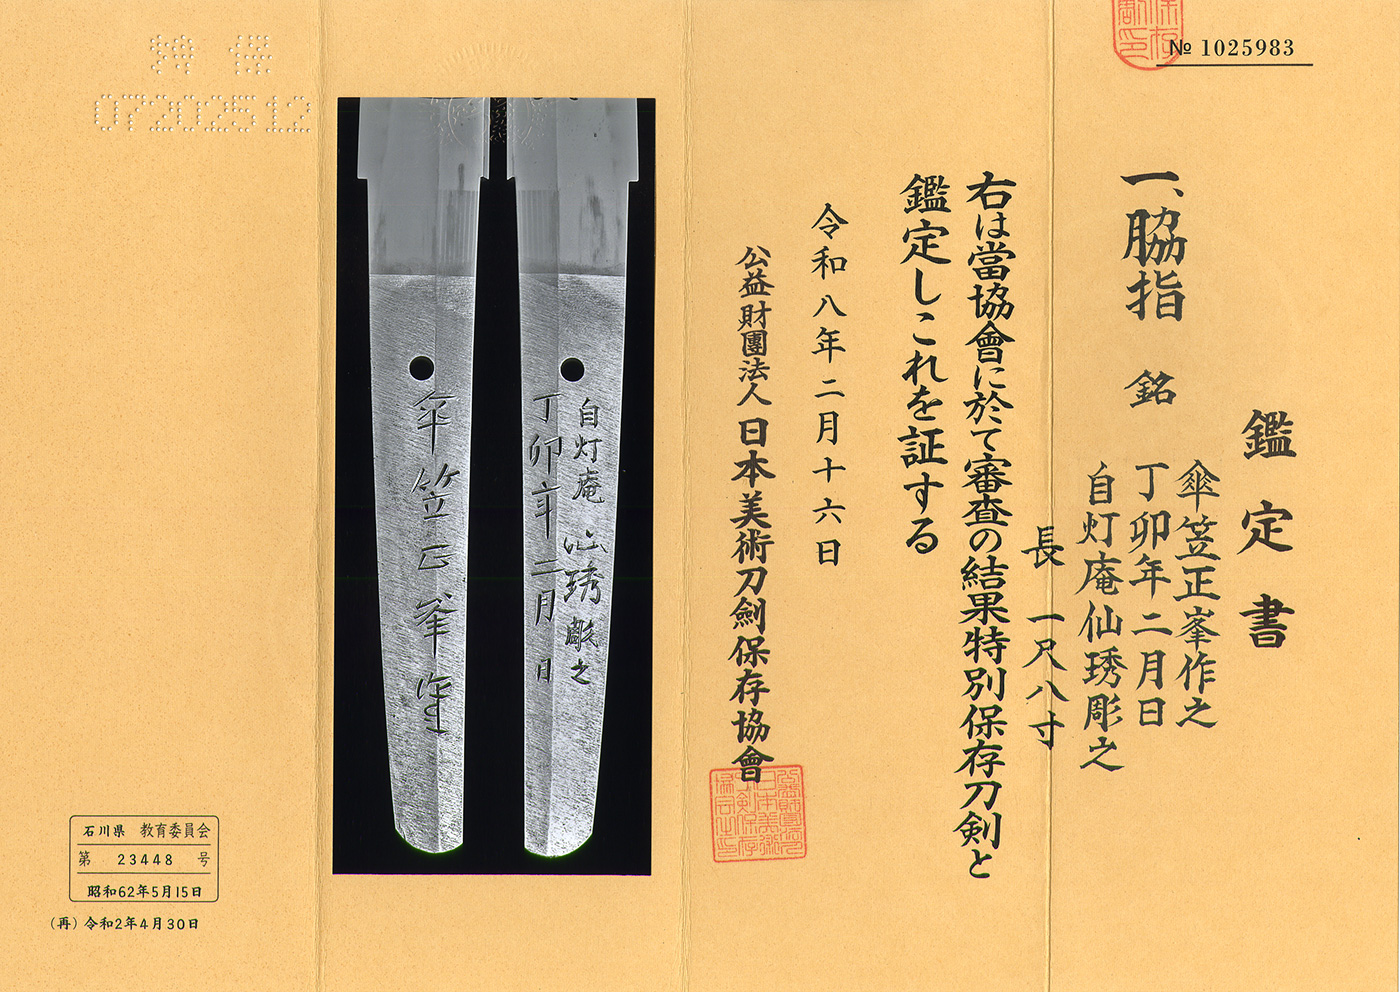 № 1025983
鑑定書
一、脇指 銘
傘笠正峯作之
丁卯年二月日
自灯庵仙琇彫之
長 一尺八寸
右は當協會に於て審査の結果特別保存刀剣と
鑑定しこれを証する
令和八年二月十六日
公益財團法人 日本美術刀劍保存協會
自灯庵 仙琇彫之
丁卯年二月 日
傘笠正峯作
07202512
石川県 教育委員会
第 23448 号
昭和62年5月15日
(再) 令和2年4月30日